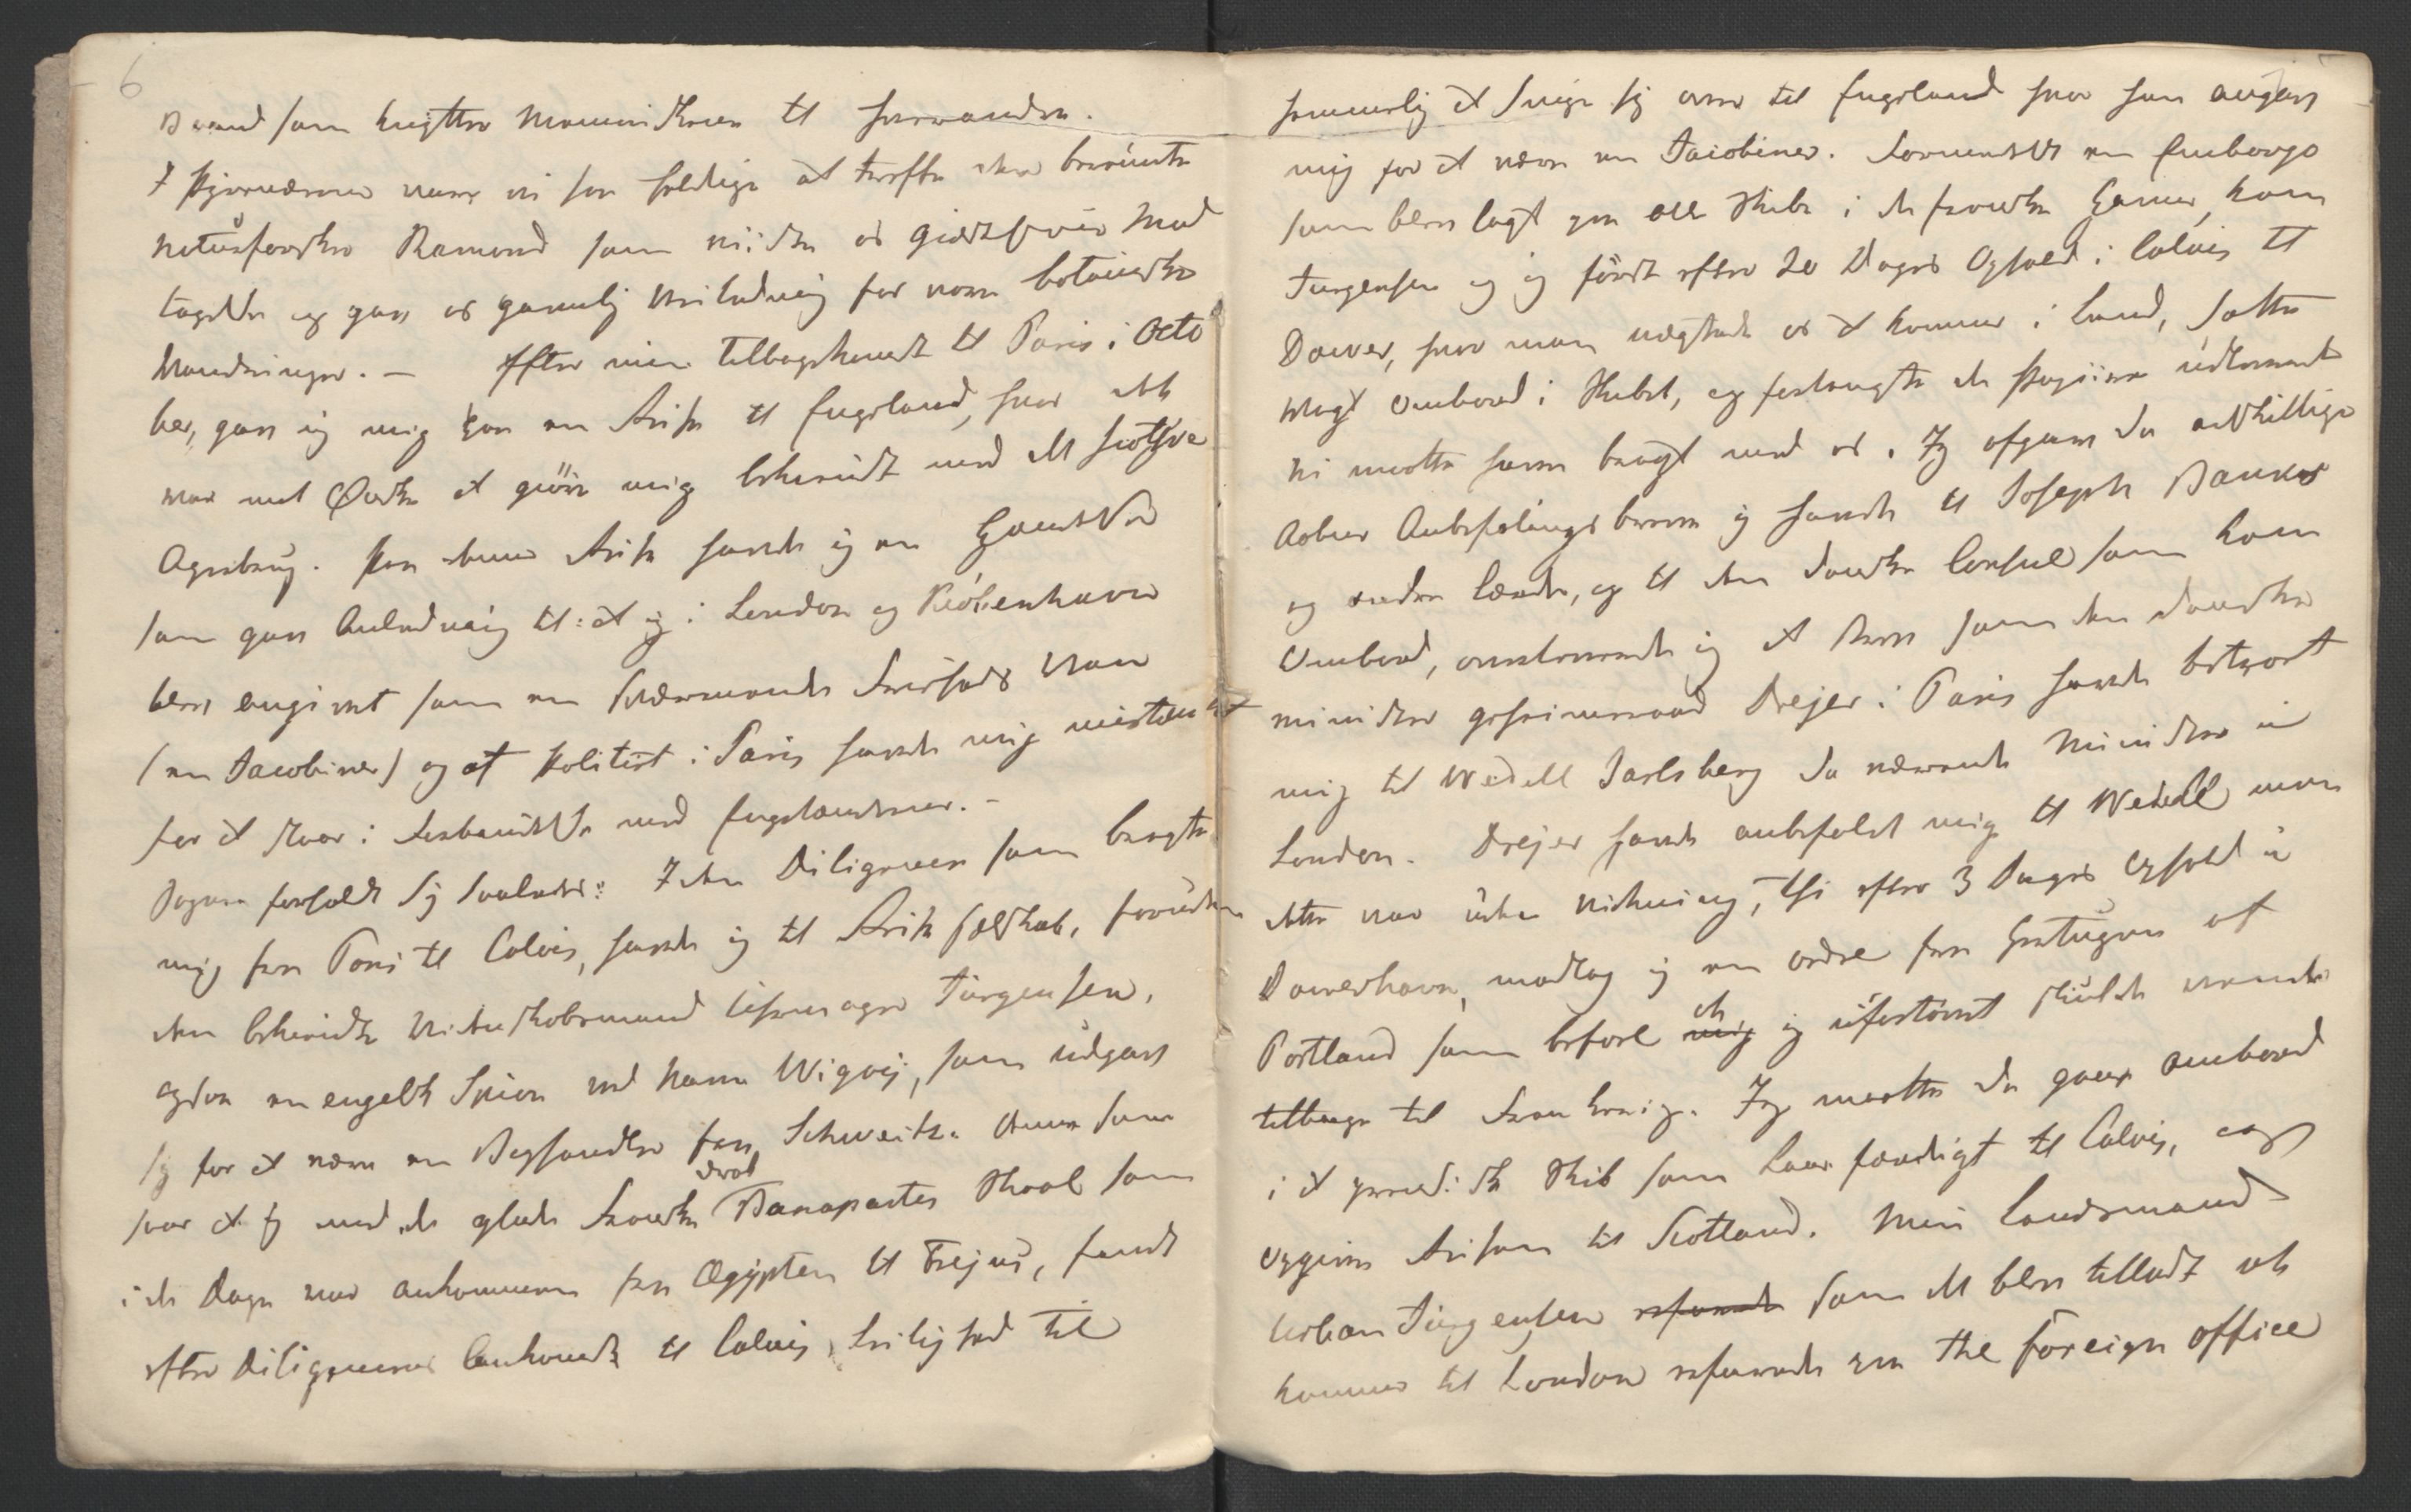 6
Brand som knytter Mennisker til hverandre.
I Pyrenæerne vare vi saa heldige at treffe den berømte
naturforsker Ramond som viiste os giæstfrie Mod
tagelse og gav os gavnlig Veiledning for vore botaniske
Vandringer. — Efter min Tilbagekomst til Paris i Octo
ber, gav ieg mig paa en Reise til England, hvor det
var mit Ønske at giöre mig bekiendt med det Engelske
Agerbrug. Paa denne Reise havde ieg en Hændelse
som gav Anledning til: at ieg i London og Kiöbenhavn
blev angivet som en sværmende Friheds Ven
(en Jacobiner) og at Politiet i Paris havde mig mistænkt
for at staae i Forbindelse med Engelænderne. —
Sagen forholdt sig saaledes: I den Diligence som bragte
mig fra Paris til Calais, havde ieg til Reise Selskab, foruden
den bekiendte Videnskabsmand Uhrmager Jürgensen,
ogsaa en engelsk Spion ved Navn Wigvig, som udgav
sig for at være en Reisende fra Schweitz. Denne som
svor at ieg med de glade Franske drak Bonapartes Skaal som
i de Dage var ankommen fra Ægypten til Frejus, fandt
efter Diligencens Ankomst til Calais, Leilighed til
hemmelig at snige sig over til England hvor han angav
mig for at være en Jacobiner. Formedelst en Embargo
som blev lagt paa alle Skibe i de franske Havne, kom
Jürgensen og ieg först efter 20 Dages Ophold i Calais til
Dower, hvor man nægtede os at komme i Land, satte
Vagt ombord i Skibet, og forlangte de Papiirer udleveret
vi maatte have bragt med os. Jeg afgav da adskillige
Aabne Anbefalingsbreve ieg havde til Joseph Banks
og andre Lærde, og til den danske Consul som kom
Ombord, overleverede ieg et Brev som den danske
minister geheimeraad Drejer i Paris havde betroet
mig til Wedell Jarlsberg da værende Minister i
London. Drejer havde anbefalet mig til Wedell men
dette var uden Virkning, thi efter 3 Dages Ophold i
Dowerhavn, modtog ieg en ordre fra Hertugen af
Portland som befoel mig at ieg ufortövet skulde vende
tilbage til Frankrig. Jeg maatte da gaae ombord
i et preussisk Skib som laae færdigt til Calais, og
opgive Reisen til Scotland. Min Landsmand
Urban Jürgensen erfarede som det blev tilladt at
komme til London erfarede paa the foreign office